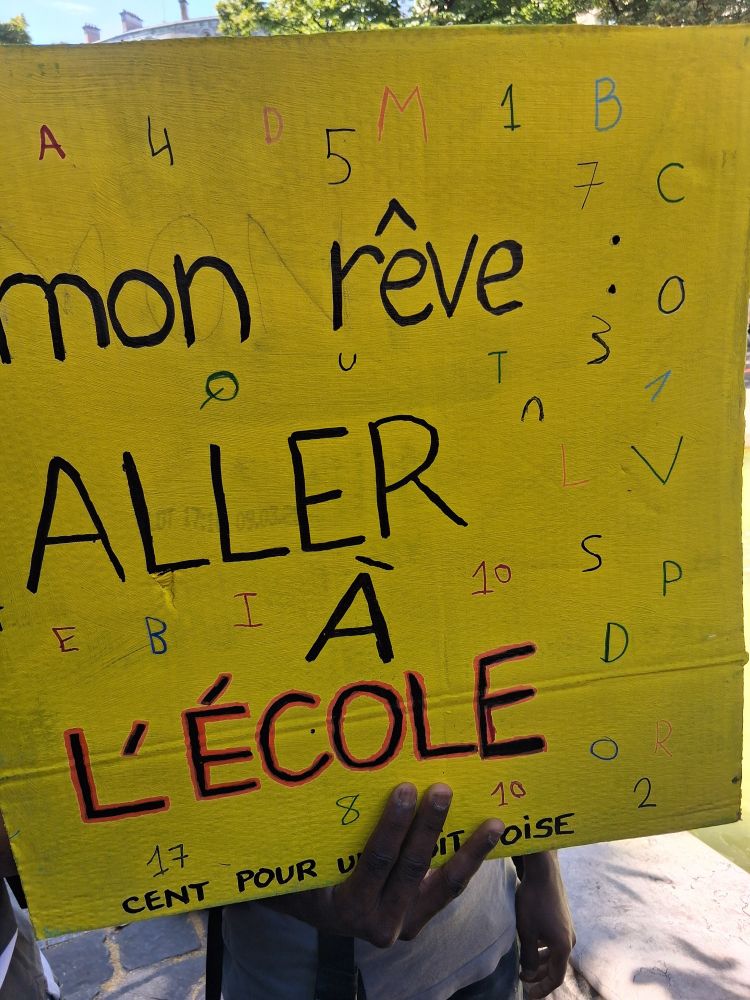 A 4 D 5 M 1 B
7 C
mon rêve :
O
3
Q U T 1
n
ALLER
L V
S
10 P
À
E B I D
L'ÉCOLE
O R
8 10 2
17
CENT POUR OISE